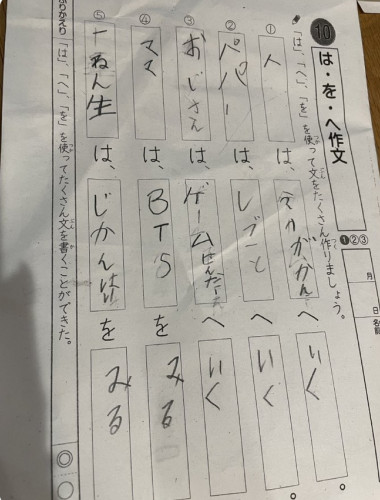 10 は・を・へ作文
❶②③ 月 日 名前
「は」、「へ」、「を」を使って文をたくさん作りましょう。
① 人 は、えいがかん へ いく。
② パパ は、しごと へ いく。
③ おじさん は、ゲーム へ いく。
④ ママ は、BTS を みる。
⑤ 一ねん生 は、じかんわり を みる
ふりかえり 「は」、「へ」、「を」を使ってたくさん文を書くことができた。